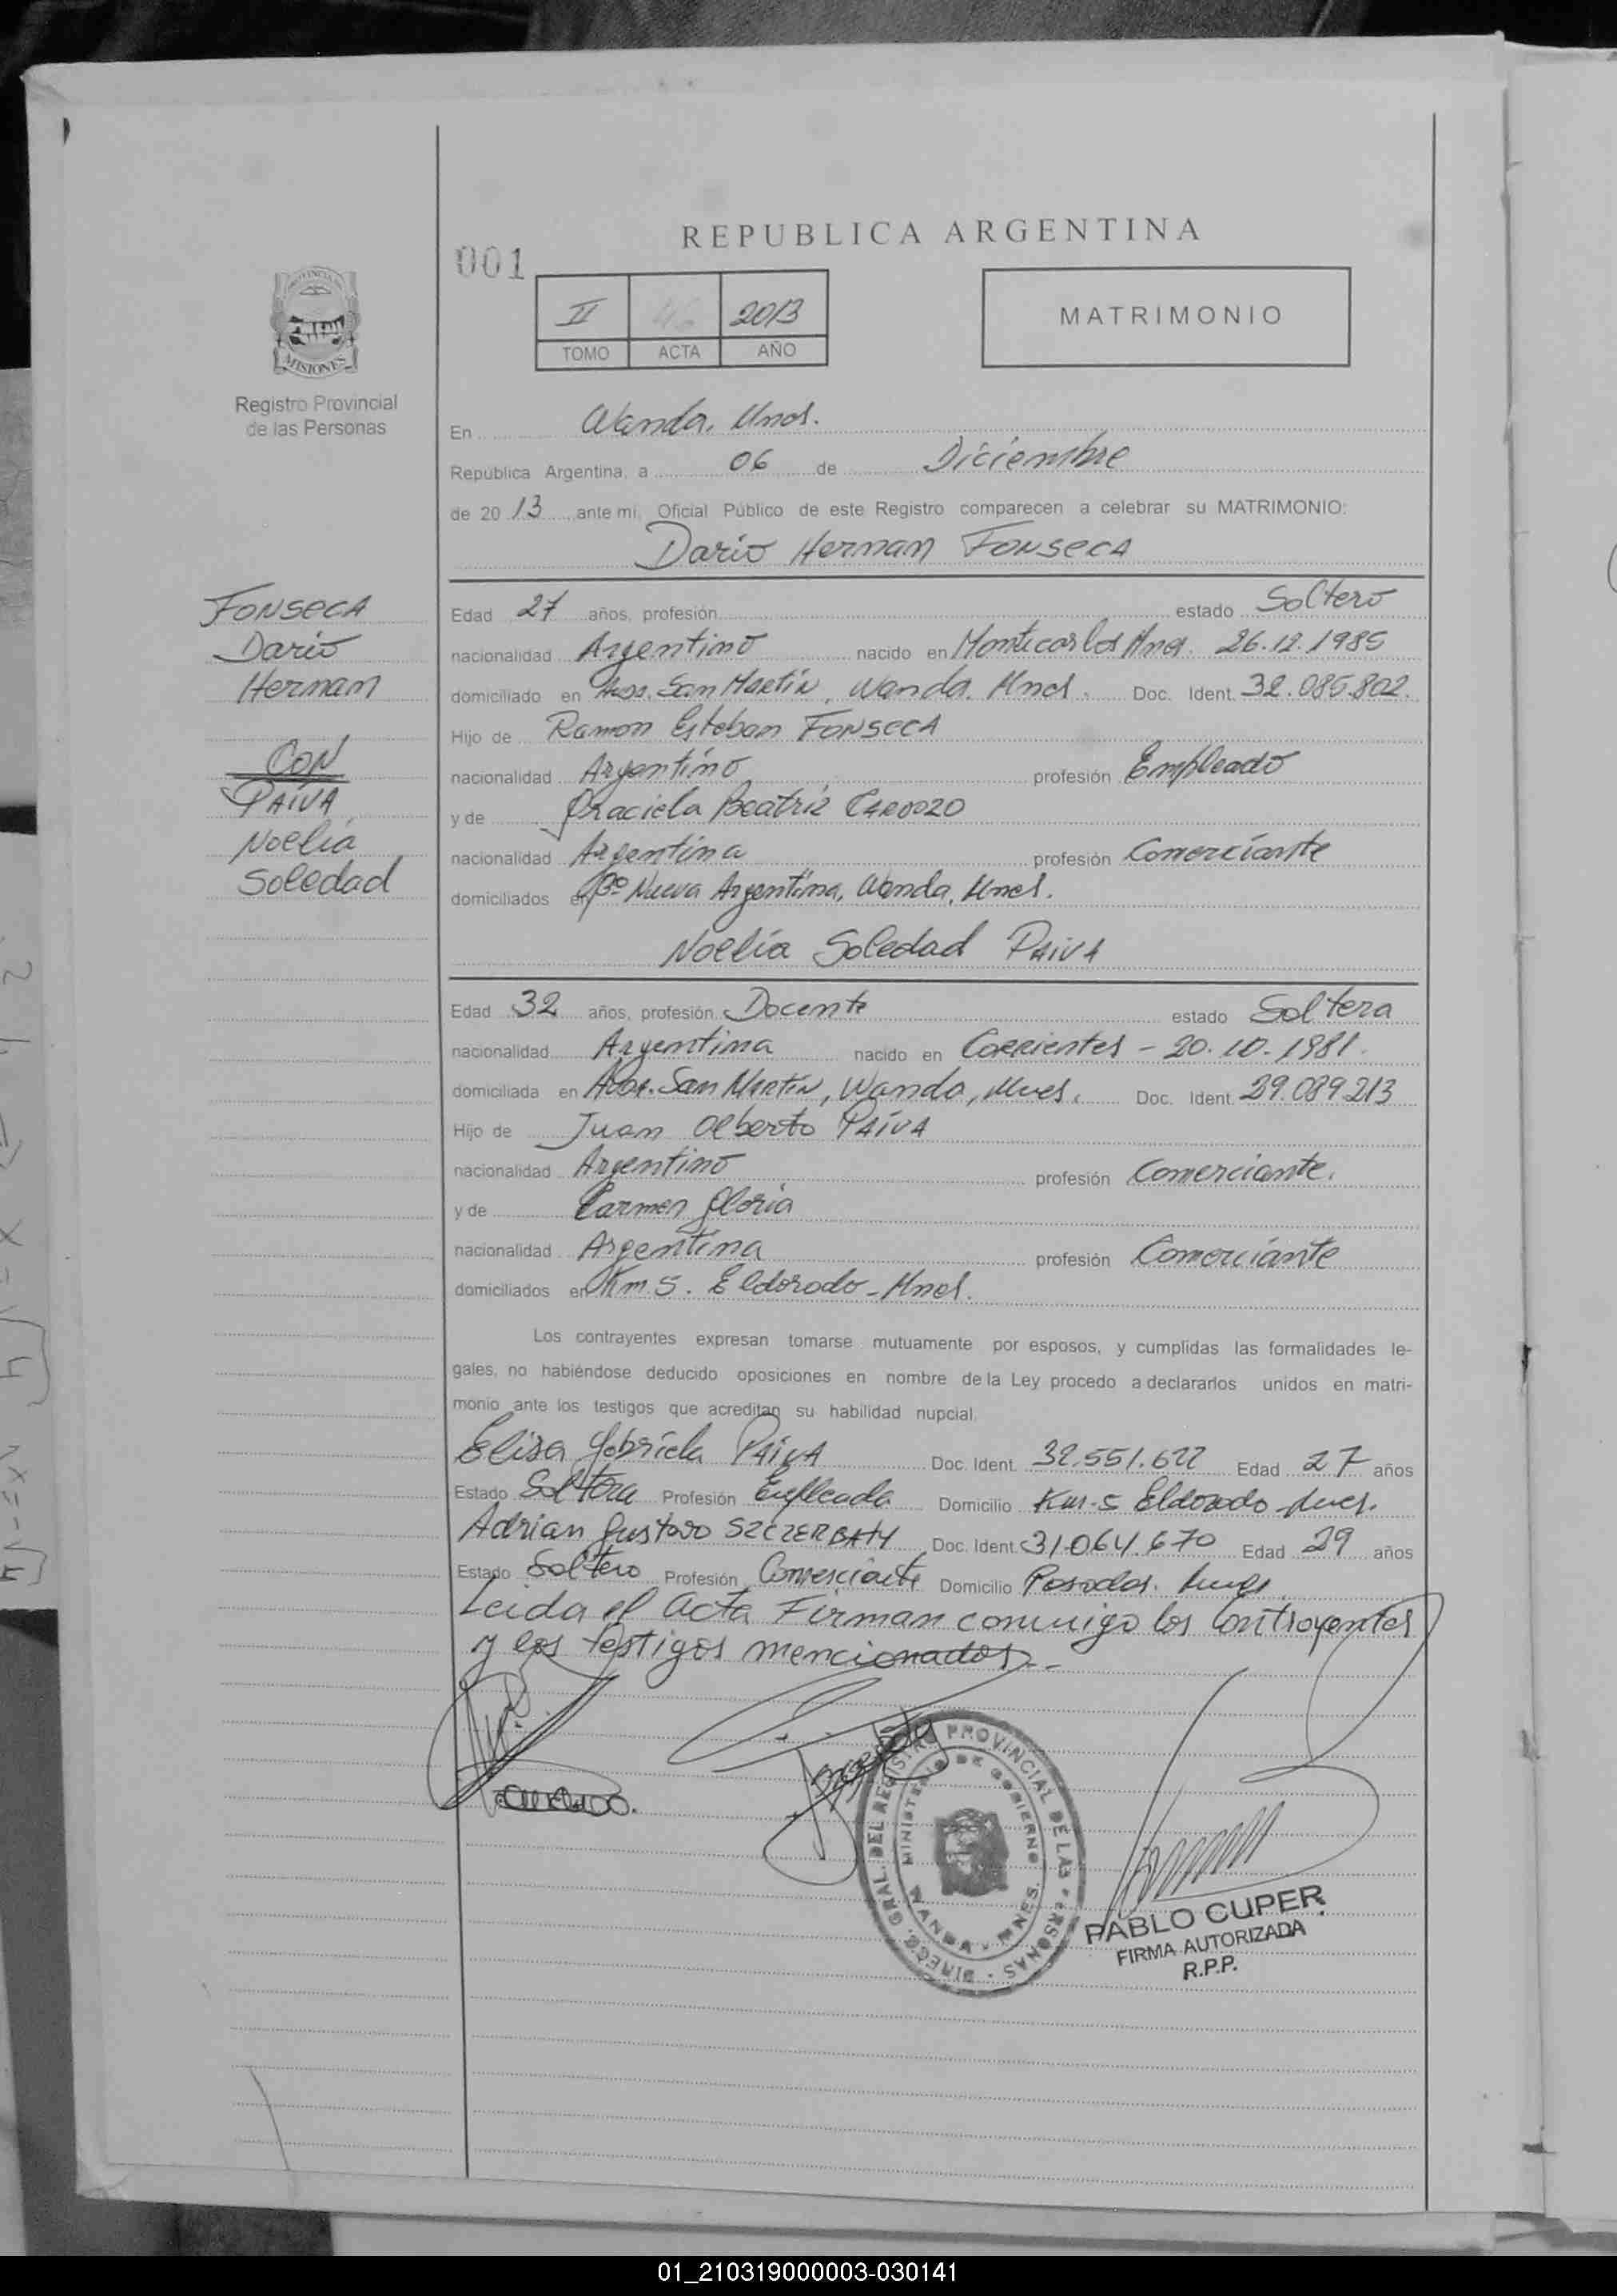 REPUBLICA ARGENTINA
001
II 46 2013
TOMO ACTA AÑO
MATRIMONIO
PROVINCIA DE
MISIONES
Registro Provincial
de las Personas
En Wanda, Mnes.
República Argentina, a 06 de Diciembre
de 2013, ante mí, Oficial Público de este Registro comparecen a celebrar su MATRIMONIO:
Dario Hernan FONSECA
FONSECA
Dario
Hernan
CON
PAIVA
Noelia
Soledad
Edad 27 años, profesión estado Soltero
nacionalidad Argentino nacido en Montecarlo, Mnes. 26.12.1985
domiciliado en San Martín, Wanda, Mnes. Doc. Ident. 32.085.802.
Hijo de Ramon Esteban FONSECA
nacionalidad Argentino profesión Empleado
y de Graciela Beatriz CARDOZO
nacionalidad Argentina profesión Comerciante
domiciliados en Bº Nueva Argentina, Wanda, Mnes.
Noelia Soledad PAIVA
Edad 32 años, profesión Docente estado Soltera
nacionalidad Argentina nacido en Corrientes - 20.10.1981.
domiciliada en San Martín, Wanda, Mnes. Doc. Ident. 29.089.213
Hijo de Juan Alberto PAIVA
nacionalidad Argentino profesión Comerciante.
y de Carmen Gloria
nacionalidad Argentina profesión Comerciante
domiciliados en Km. 5. Eldorado - Mnes.
Los contrayentes expresan tomarse mutuamente por esposos, y cumplidas las formalidades le-
gales, no habiéndose deducido oposiciones en nombre de la Ley procedo a declararlos unidos en matri-
monio ante los testigos que acreditan su habilidad nupcial.
Elisa Gabriela PAIVA Doc. Ident. 32.551.622 Edad 27 años
Estado Soltera Profesión Empleada Domicilio Km. 5 Eldorado Mnes.
Adrian Gustavo SZCZERBATY Doc. Ident. 31.064.670 Edad 29 años
Estado Soltero Profesión Comerciante Domicilio Posadas. Mnes.
Leida el acta Firman conmigo los Contrayentes
y los testigos mencionados.-
DIRECC. GRAL. DEL REGISTRO PROVINCIAL DE LAS PERSONAS
MINISTERIO DE GOBIERNO
WANDA - MNES.
PABLO CUPER
FIRMA AUTORIZADA
R.P.P.
01_210319000003-030141